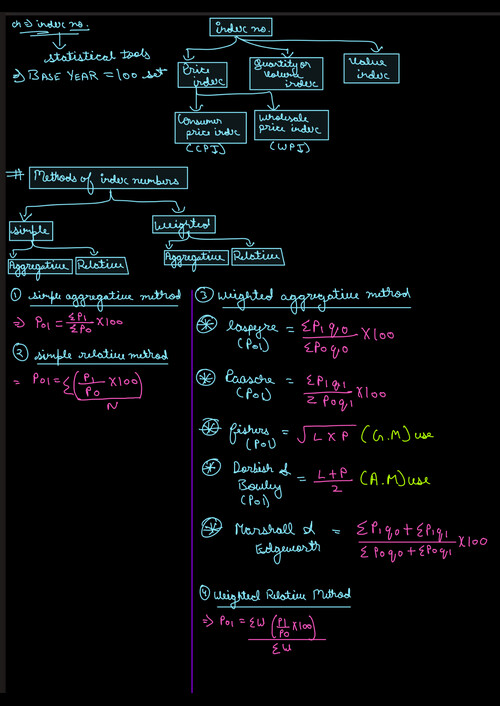 Ch ⇒ index no.
statistical tools
⇒ BASE YEAR = 100 set
index no.
Price index
Quantity or volume index
Value index
Consumer price index
(CPI)
Wholesale price index
(WPI)
# Methods of index numbers
simple
Weighted
Aggregative
Relative
Aggregative
Relative
① simple aggregative method
⇒ P01 = ΣP1/ΣP0 × 100
② simple relative method
= P01 = Σ(P1/P0 × 100)/N
③ Weighted aggregative method
* Laspyre (P01) = ΣP1q0/ΣP0q0 × 100
* Paasche (P01) = ΣP1q1/ΣP0q1 × 100
* fishers (P01) = √L×P (G.M) use
* Dorbish & Bowley (P01) = L+P/2 (A.M) use
* Marshall & Edgeworth = ΣP1q0+ΣP1q1/ΣP0q0+ΣP0q1 × 100
④ Weighted Relative Method
⇒ P01 = ΣW(P1/P0 × 100)/ΣW